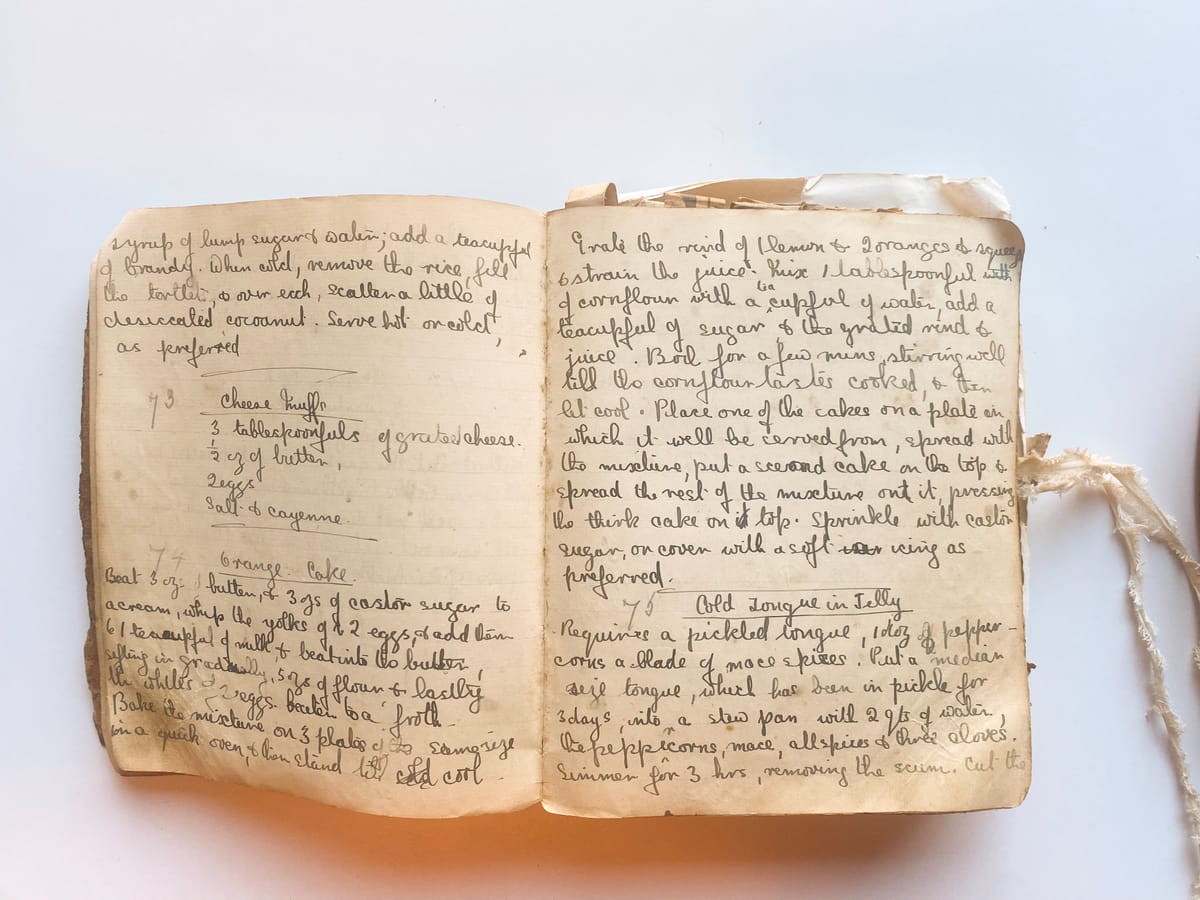 syrup of lump sugar & water; add a teacupful
of brandy. When cold, remove the rice, fill
the tortlets, & over each, scatter a little of
desiccated cocoanut. Serve hot or cold,
as preferred
73
Cheese Puffs
3 tablespoonfuls of grated cheese.
1/2 oz of butter,
2 eggs
Salt & cayenne.
74
Orange Cake.
Beat 3 oz butter, & 3 ozs of castor sugar to
a cream, whip the yolks of 2 eggs, & add them
to 1 teacupful of milk, & beat into the butter,
sifting in gradually, 5 ozs of flour & lastly
the whites of 2 eggs beaten to a froth
Bake the mixture on 3 plates of same size
in a quick oven, & then stand till cool
Grate the rind of 1 lemon & 2 oranges & squeeze
& strain the juice. Mix 1 tablespoonful
of cornflour with a tea cupful of water, add a
teacupful of sugar & the grated rind &
juice. Boil for a few mins, stirring well
till the cornflour tastes cooked, & then
let cool. Place one of the cakes on a plate on
which it will be served from, spread with
the mixture, put a second cake on the top &
spread the rest of the mixture on it, pressing
the think cake on top. Sprinkle with castor
sugar, or cover with a soft icing as
preferred.
75
Cold Tongue in Jelly
Requires a pickled tongue, 1 doz of pepper-
corns a blade of mace spices. Put a median
size tongue, which has been in pickle for
3 days, into a stew pan with 2 qts of water,
the peppicorns, mace, allspices & three cloves.
Simmer for 3 hrs, removing the scum. Cut the